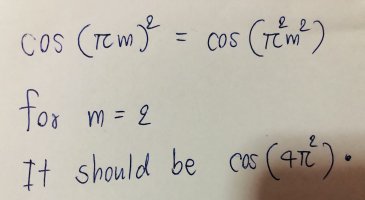 cos (πm)² = cos (π²m²)
for m = 2
It should be cos (4π²).